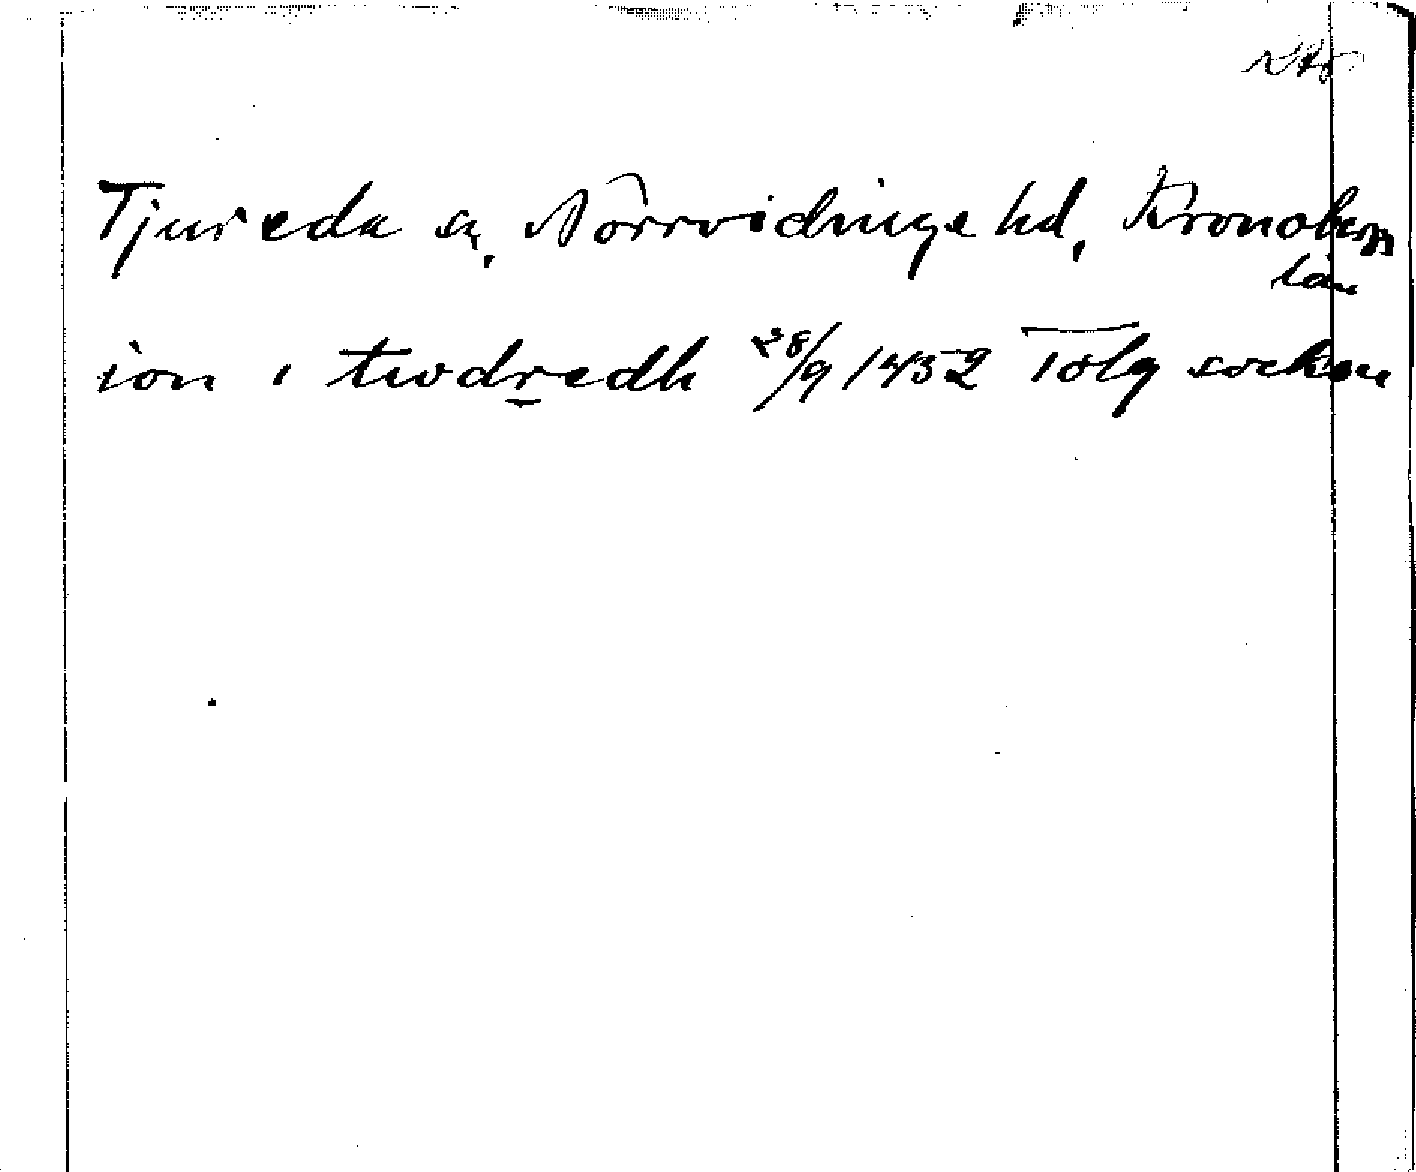 Tjureda sn, Norrvidinge hd, Kronobergs
län
ion i twdredh 28/9 1452 Tolg socken